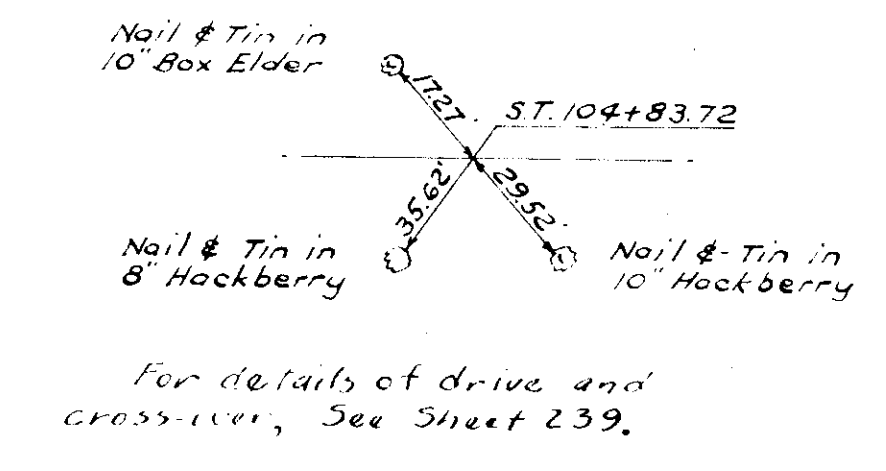 Nail & Tin in
10" Box Elder
17.27'
S.T. 104+83.72
35.62'
29.52'
Nail & Tin in
8" Hackberry
Nail & Tin in
10" Hackberry
For details of drive and
cross-over, See Sheet 239.